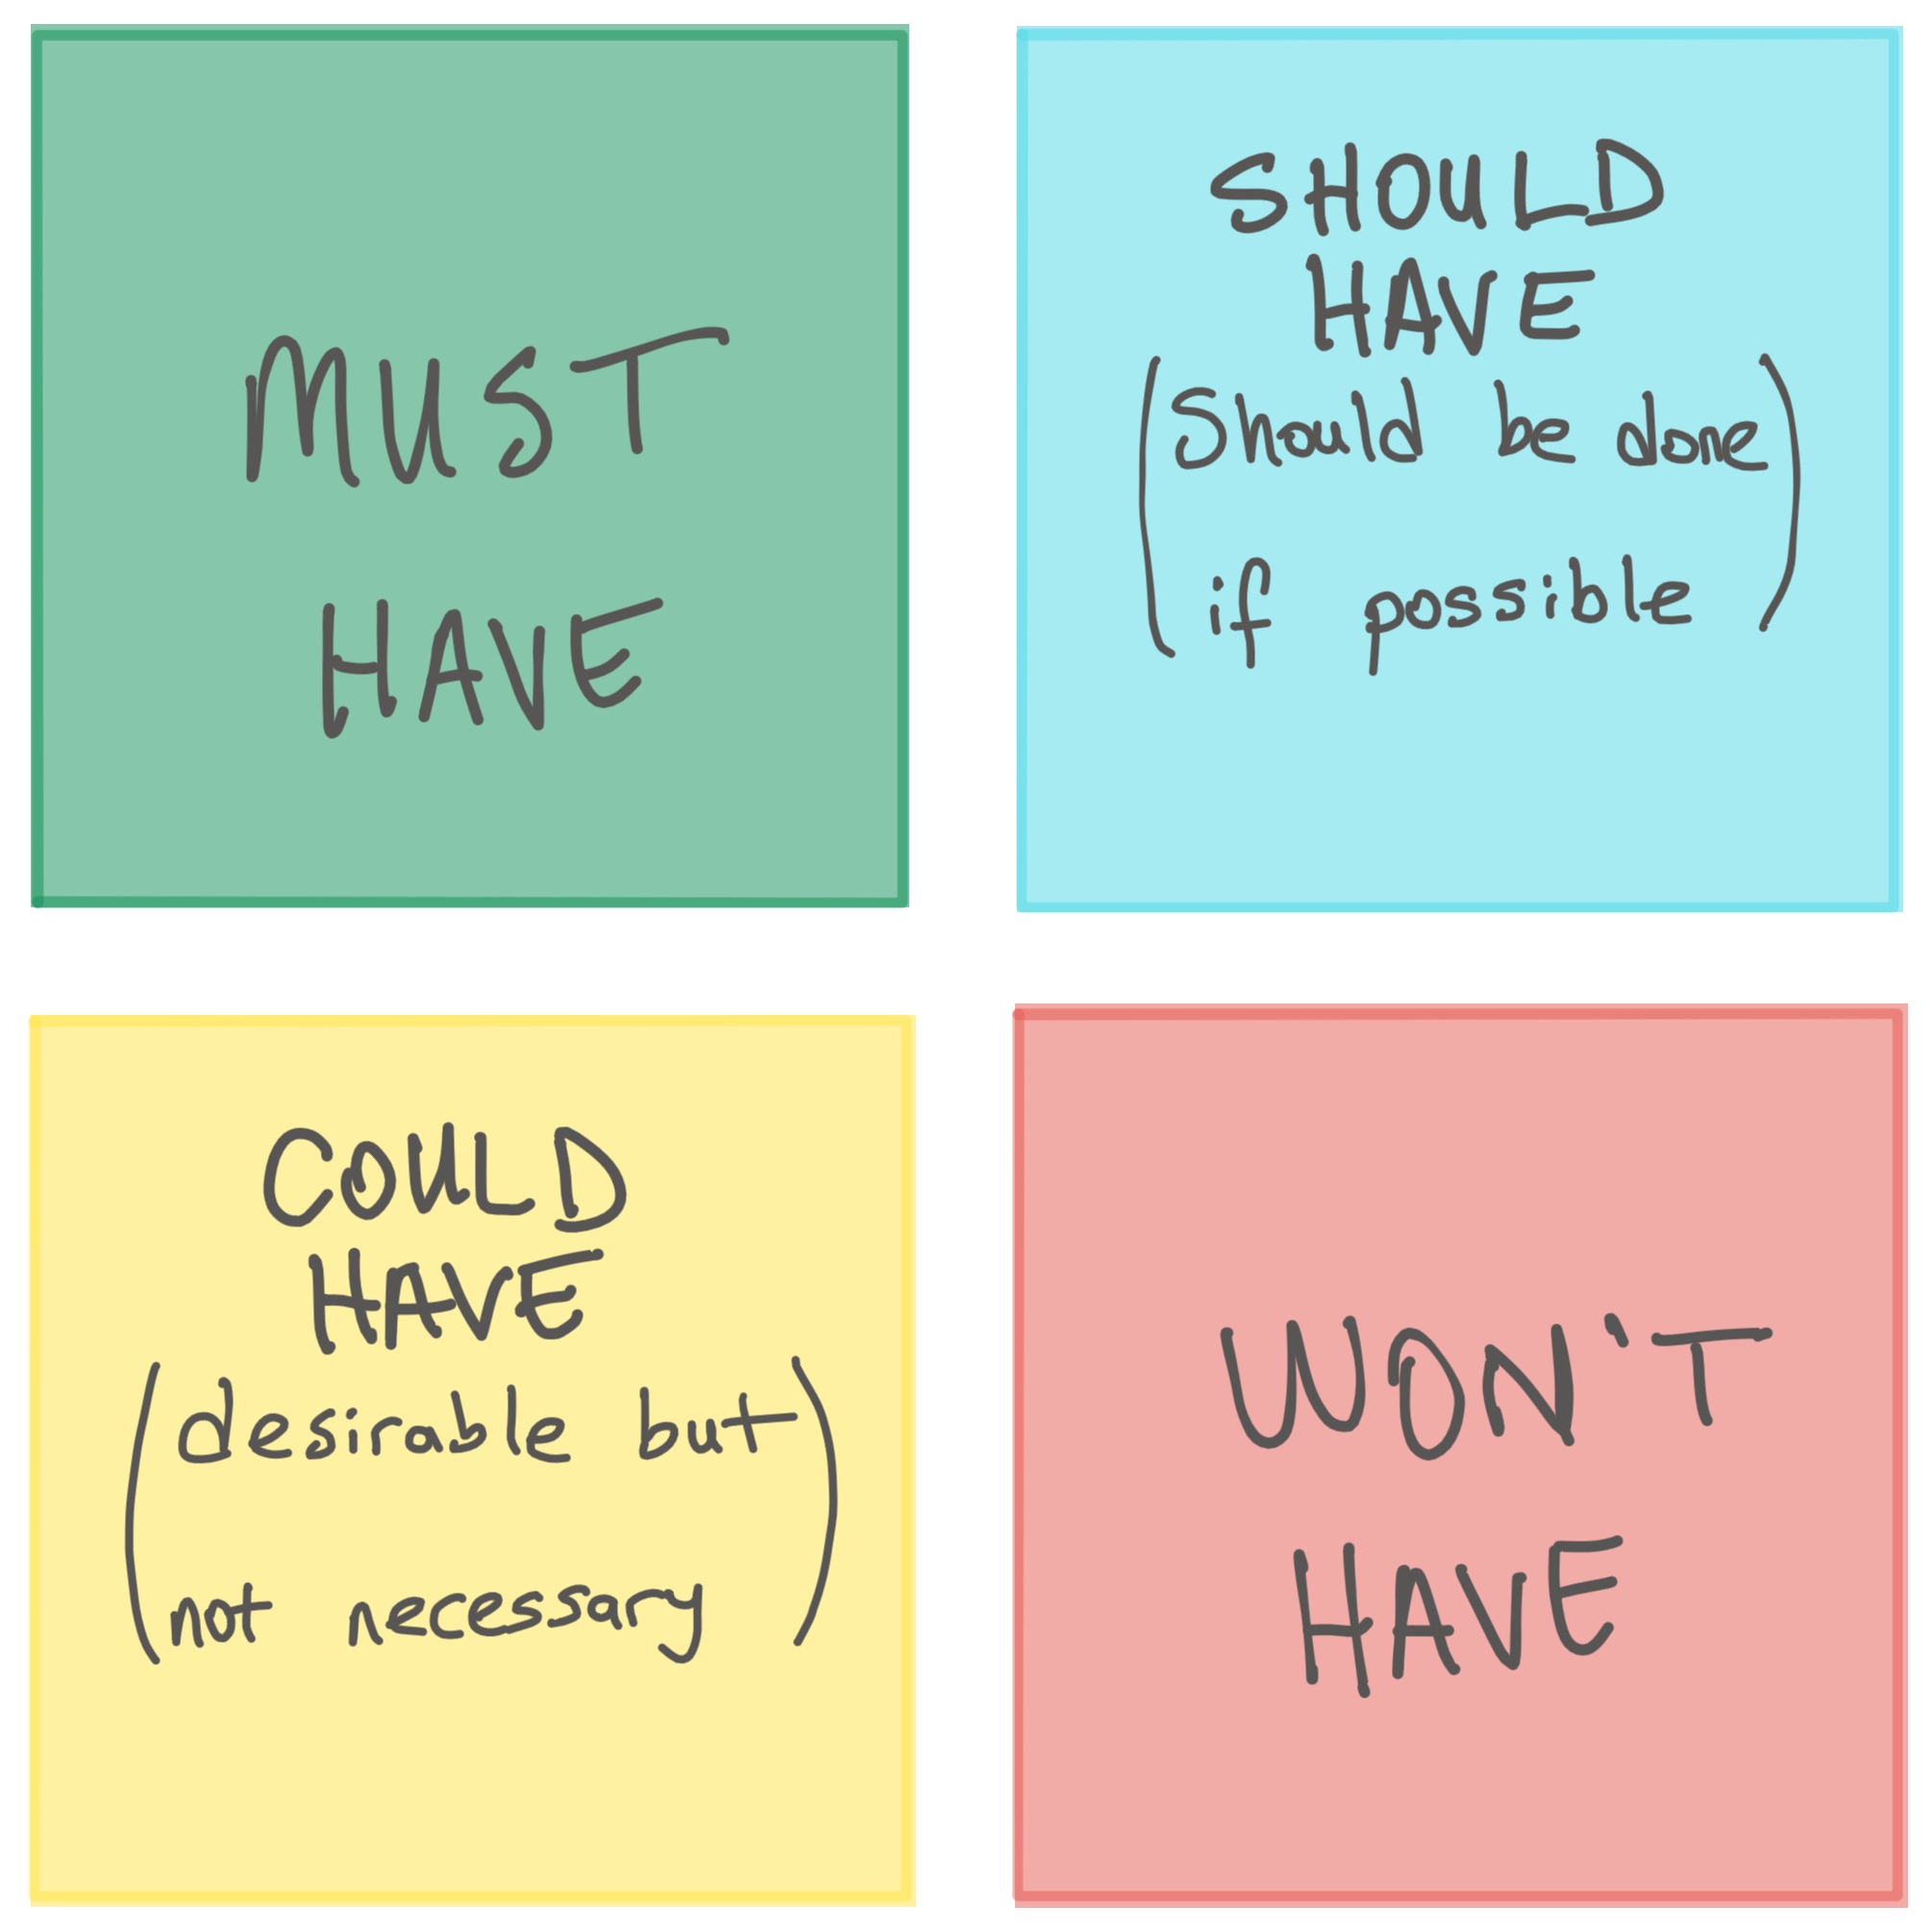 MUST
HAVE
SHOULD
HAVE
(Should be done
if possible)
COULD
HAVE
(desirable but
not necessary)
WON'T
HAVE